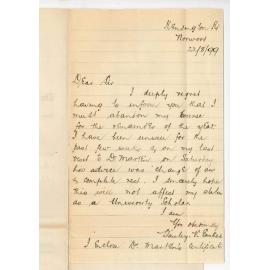 Kensington Rd
Norwood
22/8/99
Dear Sir
I deeply regret
having to inform you that I
must abandon my course
for the remainder of the year
I have been unwell for the
past few weeks & on my last
visit to Dr Marten on Saturday
his advice was change of air
& complete rest. I sincerely hope
this will not affect my claim
as a University Scholar.
I am
I Enclose Dr Marten's Certificate